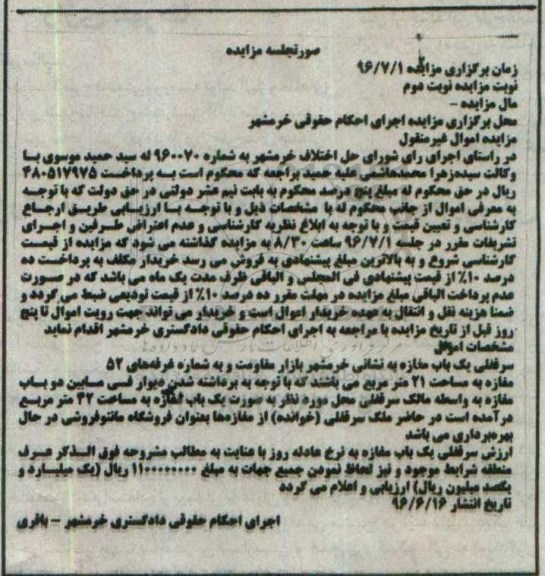 صورتجلسه مزایده
زمان برگزاری مزایده ۹۶/۷/۱
نوبت مزایده نوبت دوم
مال مزایده -
محل برگزاری مزایده اجرای احکام حقوقی خرمشهر
مزایده اموال غیرمنقول
در راستای اجرای رای شورای حل اختلاف خرمشهر به شماره ۹۶۰۰۷۰ له سید حمید موسوی با
وکالت سیده‌زهرا محمدهاشمی علیه حمید براجعه که محکوم است به پرداخت ۴۸۰۵۱۷۹۷۵
ریال در حق محکوم له مبلغ پنج درصد محکوم به بابت نیم عشر دولتی در حق دولت که با توجه
به معرفی اموال از جانب محکوم له با مشخصات ذیل و با توجه با ارزیابی طریق ارجاع
کارشناسی و تعیین قیمت و با توجه به ابلاغ نظریه کارشناسی و عدم اعتراض طرفین و اجرای
تشریفات مقرر در جلسه ۹۶/۷/۱ ساعت ۸/۳۰ به مزایده گذاشته می شود که مزایده از قیمت
کارشناسی شروع و به بالاترین مبلغ پیشنهادی به فروش می رسد خریدار مکلف به پرداخت ده
درصد ۱۰٪ از قیمت پیشنهادی فی المجلس و الباقی ظرف مدت یک ماه می باشد که در صورت
عدم پرداخت الباقی مبلغ مزایده در مهلت مقرر ده درصد ۱۰٪ از قیمت تودیعی ضبط می گردد و
ضمنا هزینه نقل و انتقال به عهده خریدار اموال است و خریدار می تواند جهت رویت اموال تا پنج
روز قبل از تاریخ مزایده با مراجعه به اجرای احکام حقوقی دادگستری خرمشهر اقدام نماید
مشخصات اموال
سرقفلی یک باب مغازه به نشانی خرمشهر بازار مقاومت و به شماره غرفه‌های ۵۲
مغازه به مساحت ۲۱ متر مربع می باشند که با توجه به برداشته شدن دیوار فی مابین دو باب
مغازه به واسطه مالک سرقفلی محل مورد نظر به صورت یک باب مغازه به مساحت ۴۲ متر مربع
درآمده است در حاضر ملک سرقفلی (خوانده) از مغازه‌ها بعنوان فروشگاه مانتوفروشی در حال
بهره‌برداری می باشد
ارزش سرقفلی یک باب مغازه به نرخ عادله روز با عنایت به مطالب مشروحه فوق الذکر عرف
منطقه شرایط موجود و نیز لحاظ نمودن جمیع جهات به مبلغ ۱۱۰۰۰۰۰۰۰۰ ریال (یک میلیارد و
یکصد میلیون ریال) ارزیابی و اعلام می گردد
تاریخ انتشار ۹۶/۶/۱۶
اجرای احکام حقوقی دادگستری خرمشهر - باقری